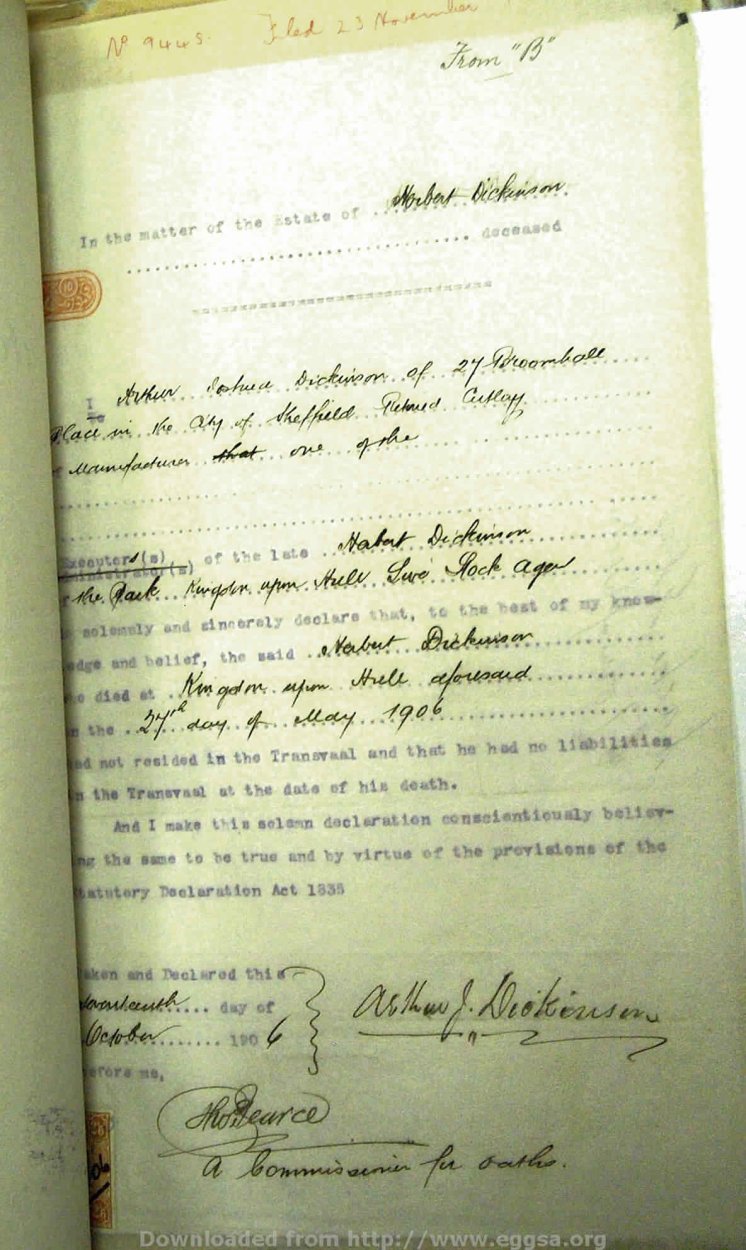 No 9448. Filed 23 November
From "B"
In the matter of the Estate of .. Norbert Dickinson
.................................... deceased
I Arthur Joshua Dickinson of 27 Broomhall
Place in the City of Sheffield Retired Cutlery
Manufacturer that one of the
Executors(s)
ministrator(s) of the late .. Norbert Dickinson
the Park Kingston upon Hull Live Stock agent
solemnly and sincerely declare that, to the best of my know-
edge and belief, the said .. Norbert Dickinson
died at .. Kingston upon Hull aforesaid
the .. 27th day of May 1906
ad not resided in the Transvaal and that he had no liabilities
n the Transvaal at the date of his death.
And I make this solemn declaration conscientiously believ-
ng the same to be true and by virtue of the provisions of the
tatutory Declaration Act 1835
aken and Declared this
seventeenth ..... day of
October ........ 1906
efore me,
Arthur J. Dickinson
Thos Pearce
A Commissioner for oaths.
Downloaded from http://www.eggsa.org